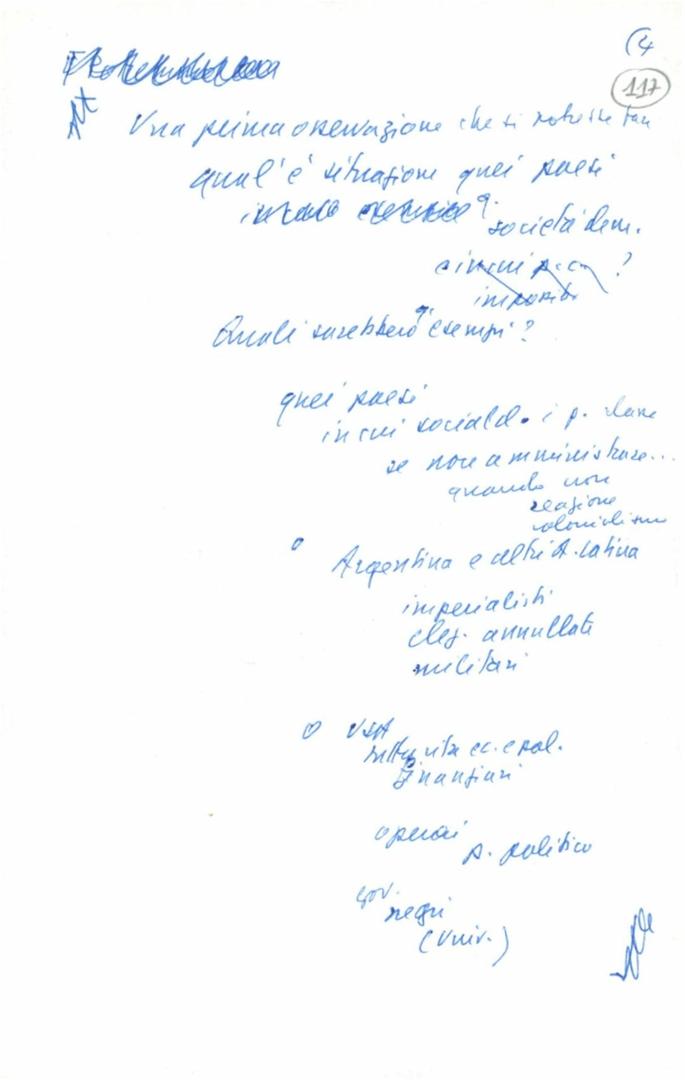 (4
117
Una prima osservazione che si potrebbe fare
qual'è situazione quei paesi
in cui
società dem.
?
Quali sarebbero esempi?
quei paesi
in cui sociald. i p. 
se non amministrare...
quando non
reazione
colonialismo
Argentina e altri A. Latina
imperialisti
elez. annullate
militari
o USA
tutta vita ec. e pol.
finanziari
operai
p. politico
gov.
negri
(Univ.)